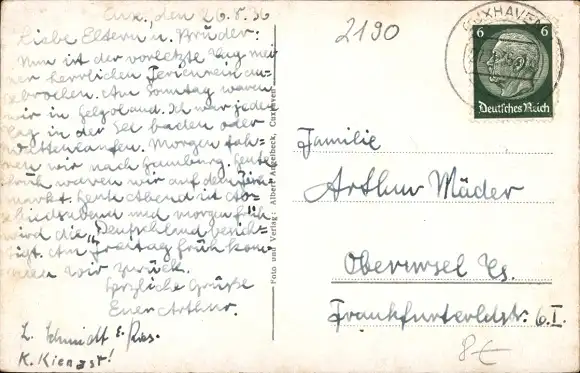 Cux., den 26.8.36
Liebe Eltern u. Brüder:
Nun ist der vorletzte Tag mei-
ner herrlichen Ferienreise an-
gebrochen. Am Sonntag waren
wir in Helgoland. Ich war jeden
Tag in der See baden oder
wettenlaufen. Morgen fah-
ren wir nach Hamburg. Heute
früh waren wir auf dem
markt. Heute Abend ist Ab-
schiedsabend und morgen früh
wird die "Deutschland besich-
tigt. Am Freitag früh kom-
men wir zurück.
Herzliche Grüße
Euer Arthur.
L. Schmidt
K. Kienast!
Foto und Verlag: Albert Angerbeck, Cuxhaven
2190
CUXHAVEN
6 6
Deutsches Reich
Familie
Arthur Mäder
Oberursel Ts.
Frankfurterldstr. 6.I.
8€